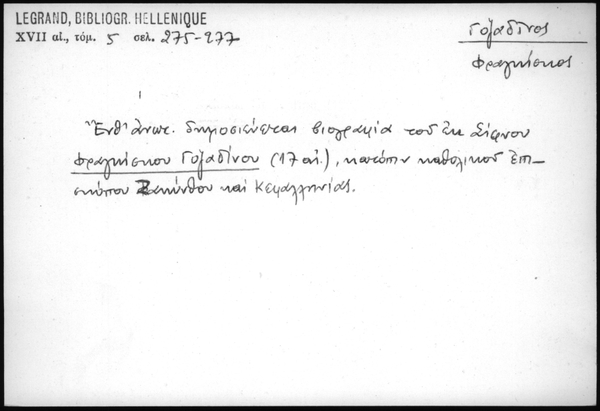 LEGRAND, BIBLIOGR. HELLENIQUE
XVII αἰ., τόμ. 5 σελ. 275-277
Γοζαδῖνος
Φραγκίσκος
Ἔνθ' ἀνωτ. δημοσιεύεται βιογραφία τοῦ ἐκ Σίφνου
Φραγκίσκου Γοζαδίνου (17 αἰ.), κατόπιν καθολικοῦ ἐπι-
σκόπου Ζακύνθου καὶ Κεφαλληνίας.